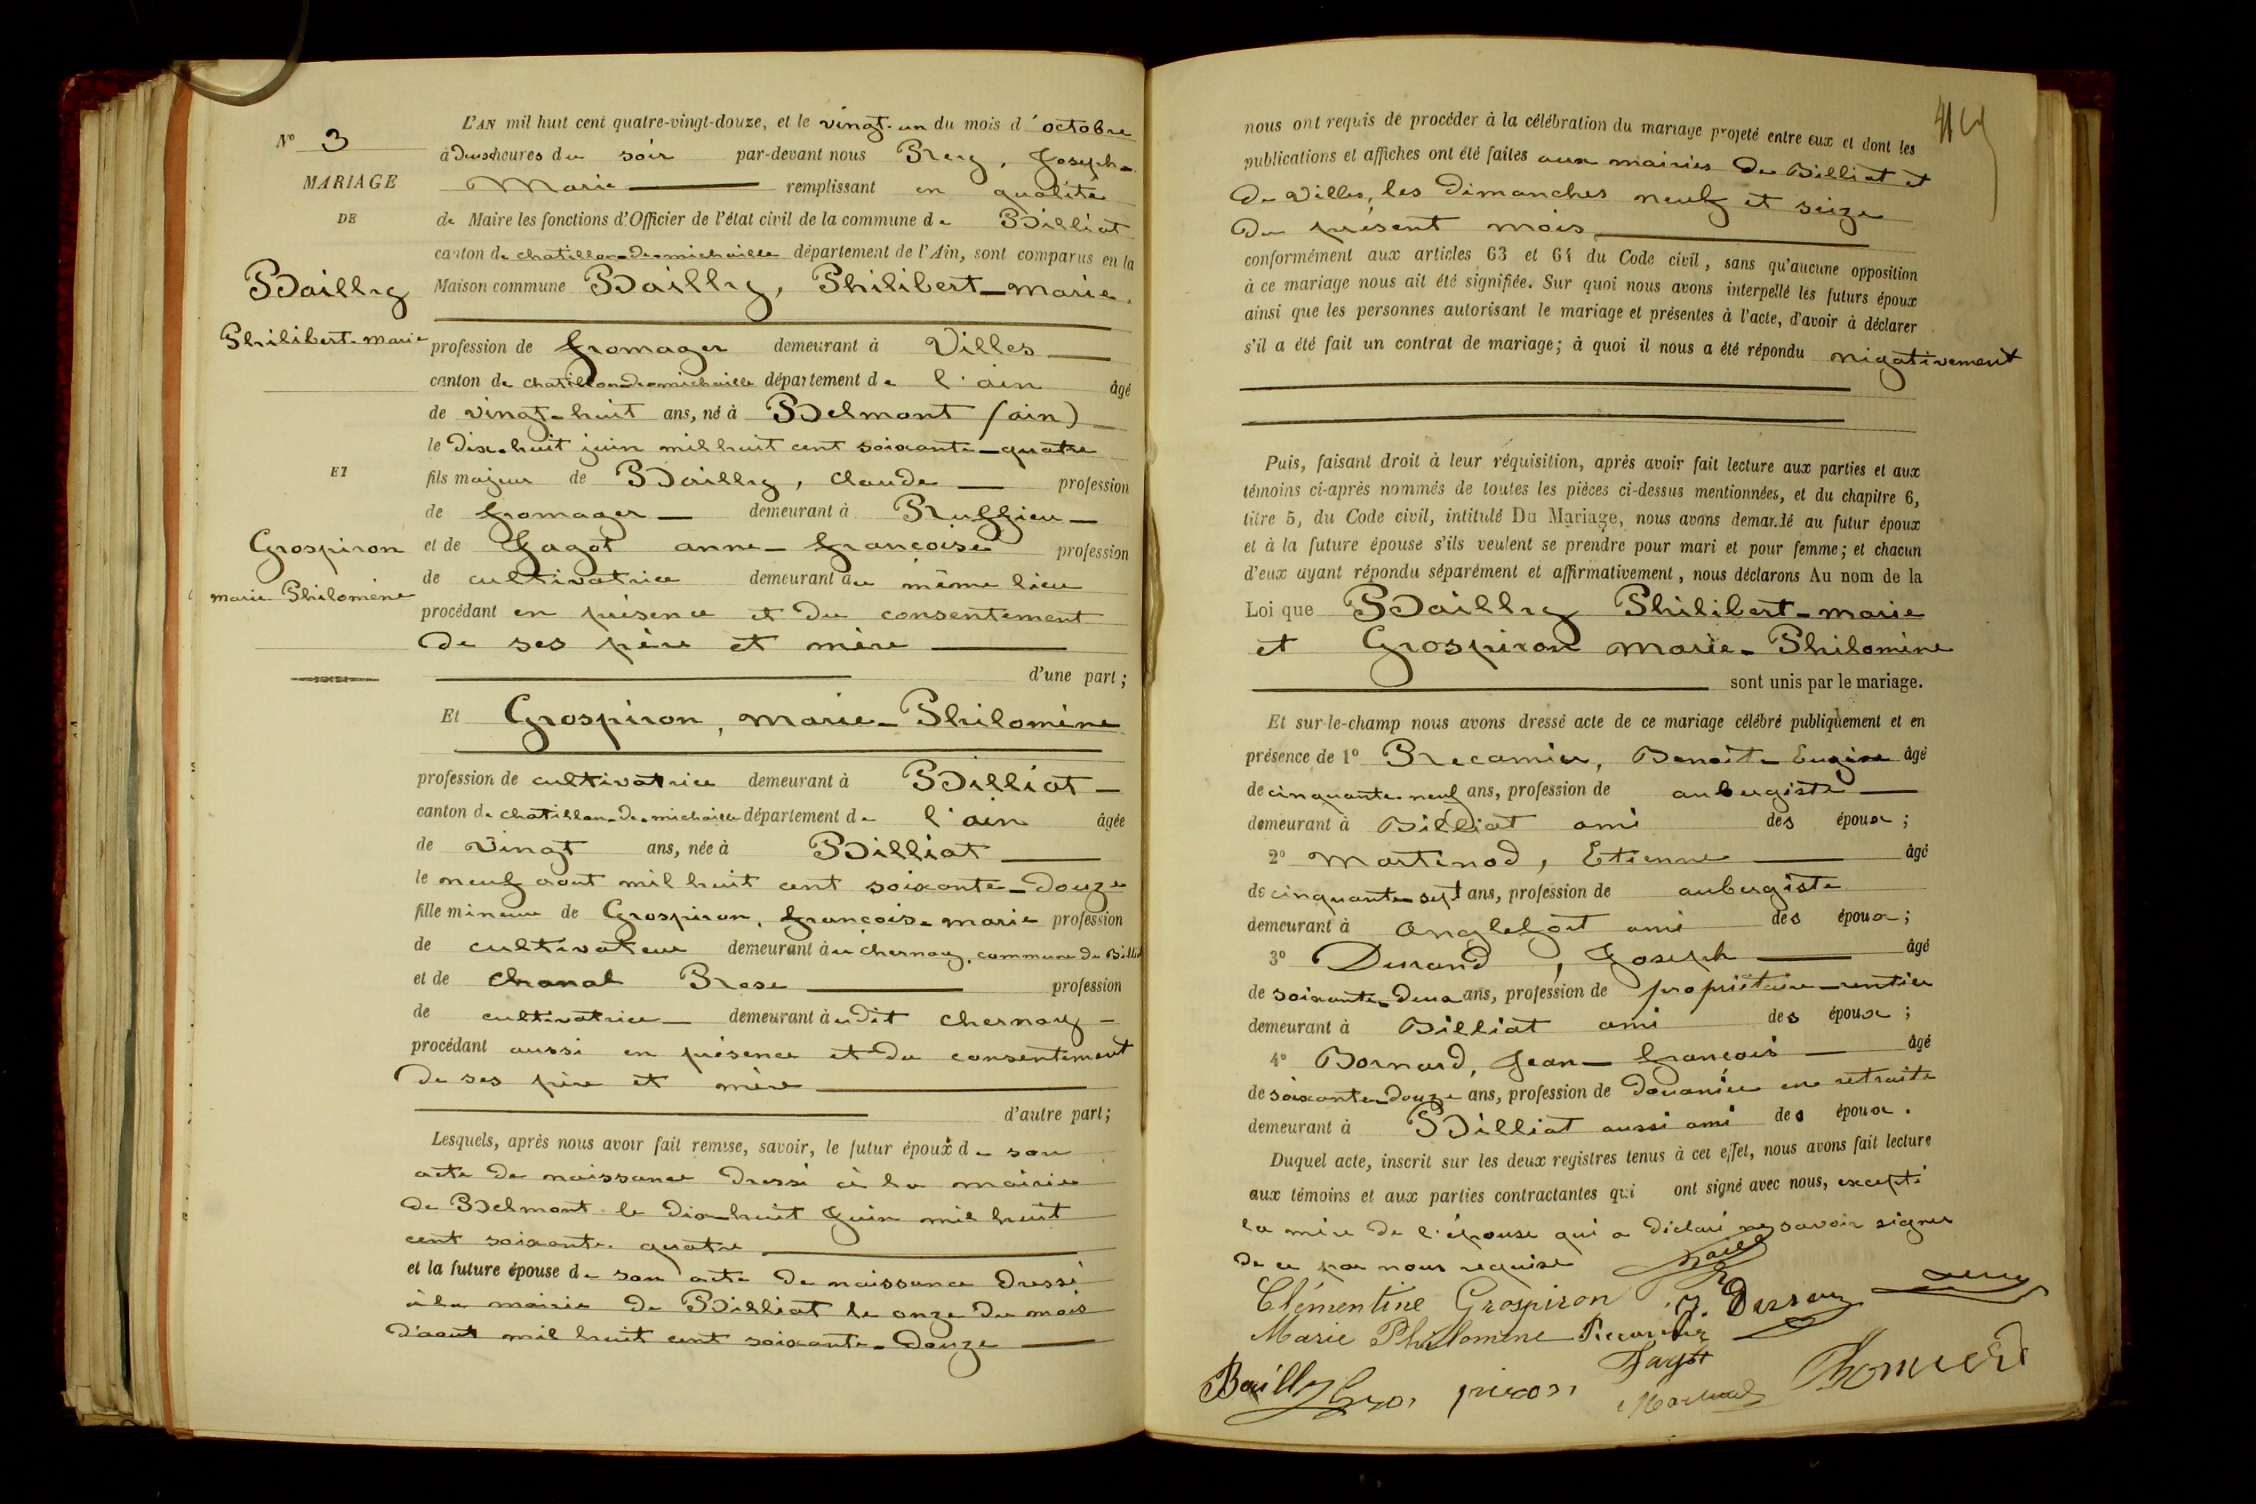 N° 3
MARIAGE
DE
Bailly
Philibert-marie
ET
Grospiron
marie Philomène
L'AN mil huit cent quatre-vingt-douze, et le vingt-un du mois d'octobre
à Deux heures du soir par-devant nous Rey, Joseph-
Marie remplissant en qualité
de Maire les fonctions d'Officier de l'état civil de la commune de Billiat
canton de chatillon-de-michaille département de l'Ain, sont comparus en la
Maison commune Bailly, Philibert-marie.
profession de fromager demeurant à Villes
canton de chatillon-de-michaille département de l'ain âgé
de vingt-huit ans, né à Belmont (ain)
le Dix-huit juin mil huit cent soixante-quatre
fils majeur de Bailly, Claude profession
de fromager demeurant à Ruffieu
et de Fagot anne-françoise profession
de cultivatrice demeurant au même lieu
procédant en présence et du consentement
de ses père et mère
d'une part;
Et Grospiron, marie-Philomène
profession de cultivatrice demeurant à Billiat
canton de chatillon-de-michaille département de l'ain âgée
de Vingt ans, née à Billiat
le neuf aout mil huit cent soixante-douze
fille mineure de Grospiron, françois-marie profession
de cultivateur demeurant à chernoux, commune de Billiat
et de chanal Rose profession
de cultivatrice demeurant au dit chernoux
procédant aussi en présence et du consentement
de ses père et mère
d'autre part;
Lesquels, après nous avoir fait remise, savoir, le futur époux de son
acte de naissance dressé à la mairie
de Belmont le dix-huit Juin mil huit
cent soixante-quatre
et la future épouse de son acte de naissance dressé
à la mairie de Billiat le onze du mois
d'aout mil huit cent soixante-douze
nous ont requis de procéder à la célébration du mariage projeté entre eux et dont les
publications et affiches ont été faites aux mairies de Billiat et
de Villes, les dimanches neuf et seize
du présent mois
conformément aux articles 63 et 64 du Code civil, sans qu'aucune opposition
à ce mariage nous ait été signifiée. Sur quoi nous avons interpellé les futurs époux
ainsi que les personnes autorisant le mariage et présentes à l'acte, d'avoir à déclarer
s'il a été fait un contrat de mariage; à quoi il nous a été répondu négativement
Puis, faisant droit à leur réquisition, après avoir fait lecture aux parties et aux
témoins ci-après nommés de toutes les pièces ci-dessus mentionnées, et du chapitre 6,
titre 5, du Code civil, intitulé Du Mariage, nous avons demandé au futur époux
et à la future épouse s'ils veulent se prendre pour mari et pour femme; et chacun
d'eux ayant répondu séparément et affirmativement, nous déclarons Au nom de la
Loi que Bailly Philibert-marie
et Grospiron marie-Philomène
sont unis par le mariage.
Et sur-le-champ nous avons dressé acte de ce mariage célébré publiquement et en
présence de 1° Recamier, Benoît-Eugène âgé
de cinquante-neuf ans, profession de aubergiste
demeurant à Billiat ami des époux;
2° Martinod, Etienne âgé
de cinquante-sept ans, profession de aubergiste
demeurant à anglefort ami des époux;
3° Durand, Joseph âgé
de soixante-deux ans, profession de propriétaire-rentier
demeurant à Billiat ami des époux;
4° Bornard, Jean-françois âgé
de soixante-douze ans, profession de douanier en retraite
demeurant à Billiat aussi ami des époux.
Duquel acte, inscrit sur les deux registres tenus à cet effet, nous avons fait lecture
aux témoins et aux parties contractantes qui ont signé avec nous, excepté
la mère de l'épouse qui a déclaré ne savoir signer
de ce par nous requise
Clémentine Grospiron
Marie Philomène Recamier
Bailly Gros piron Fagot